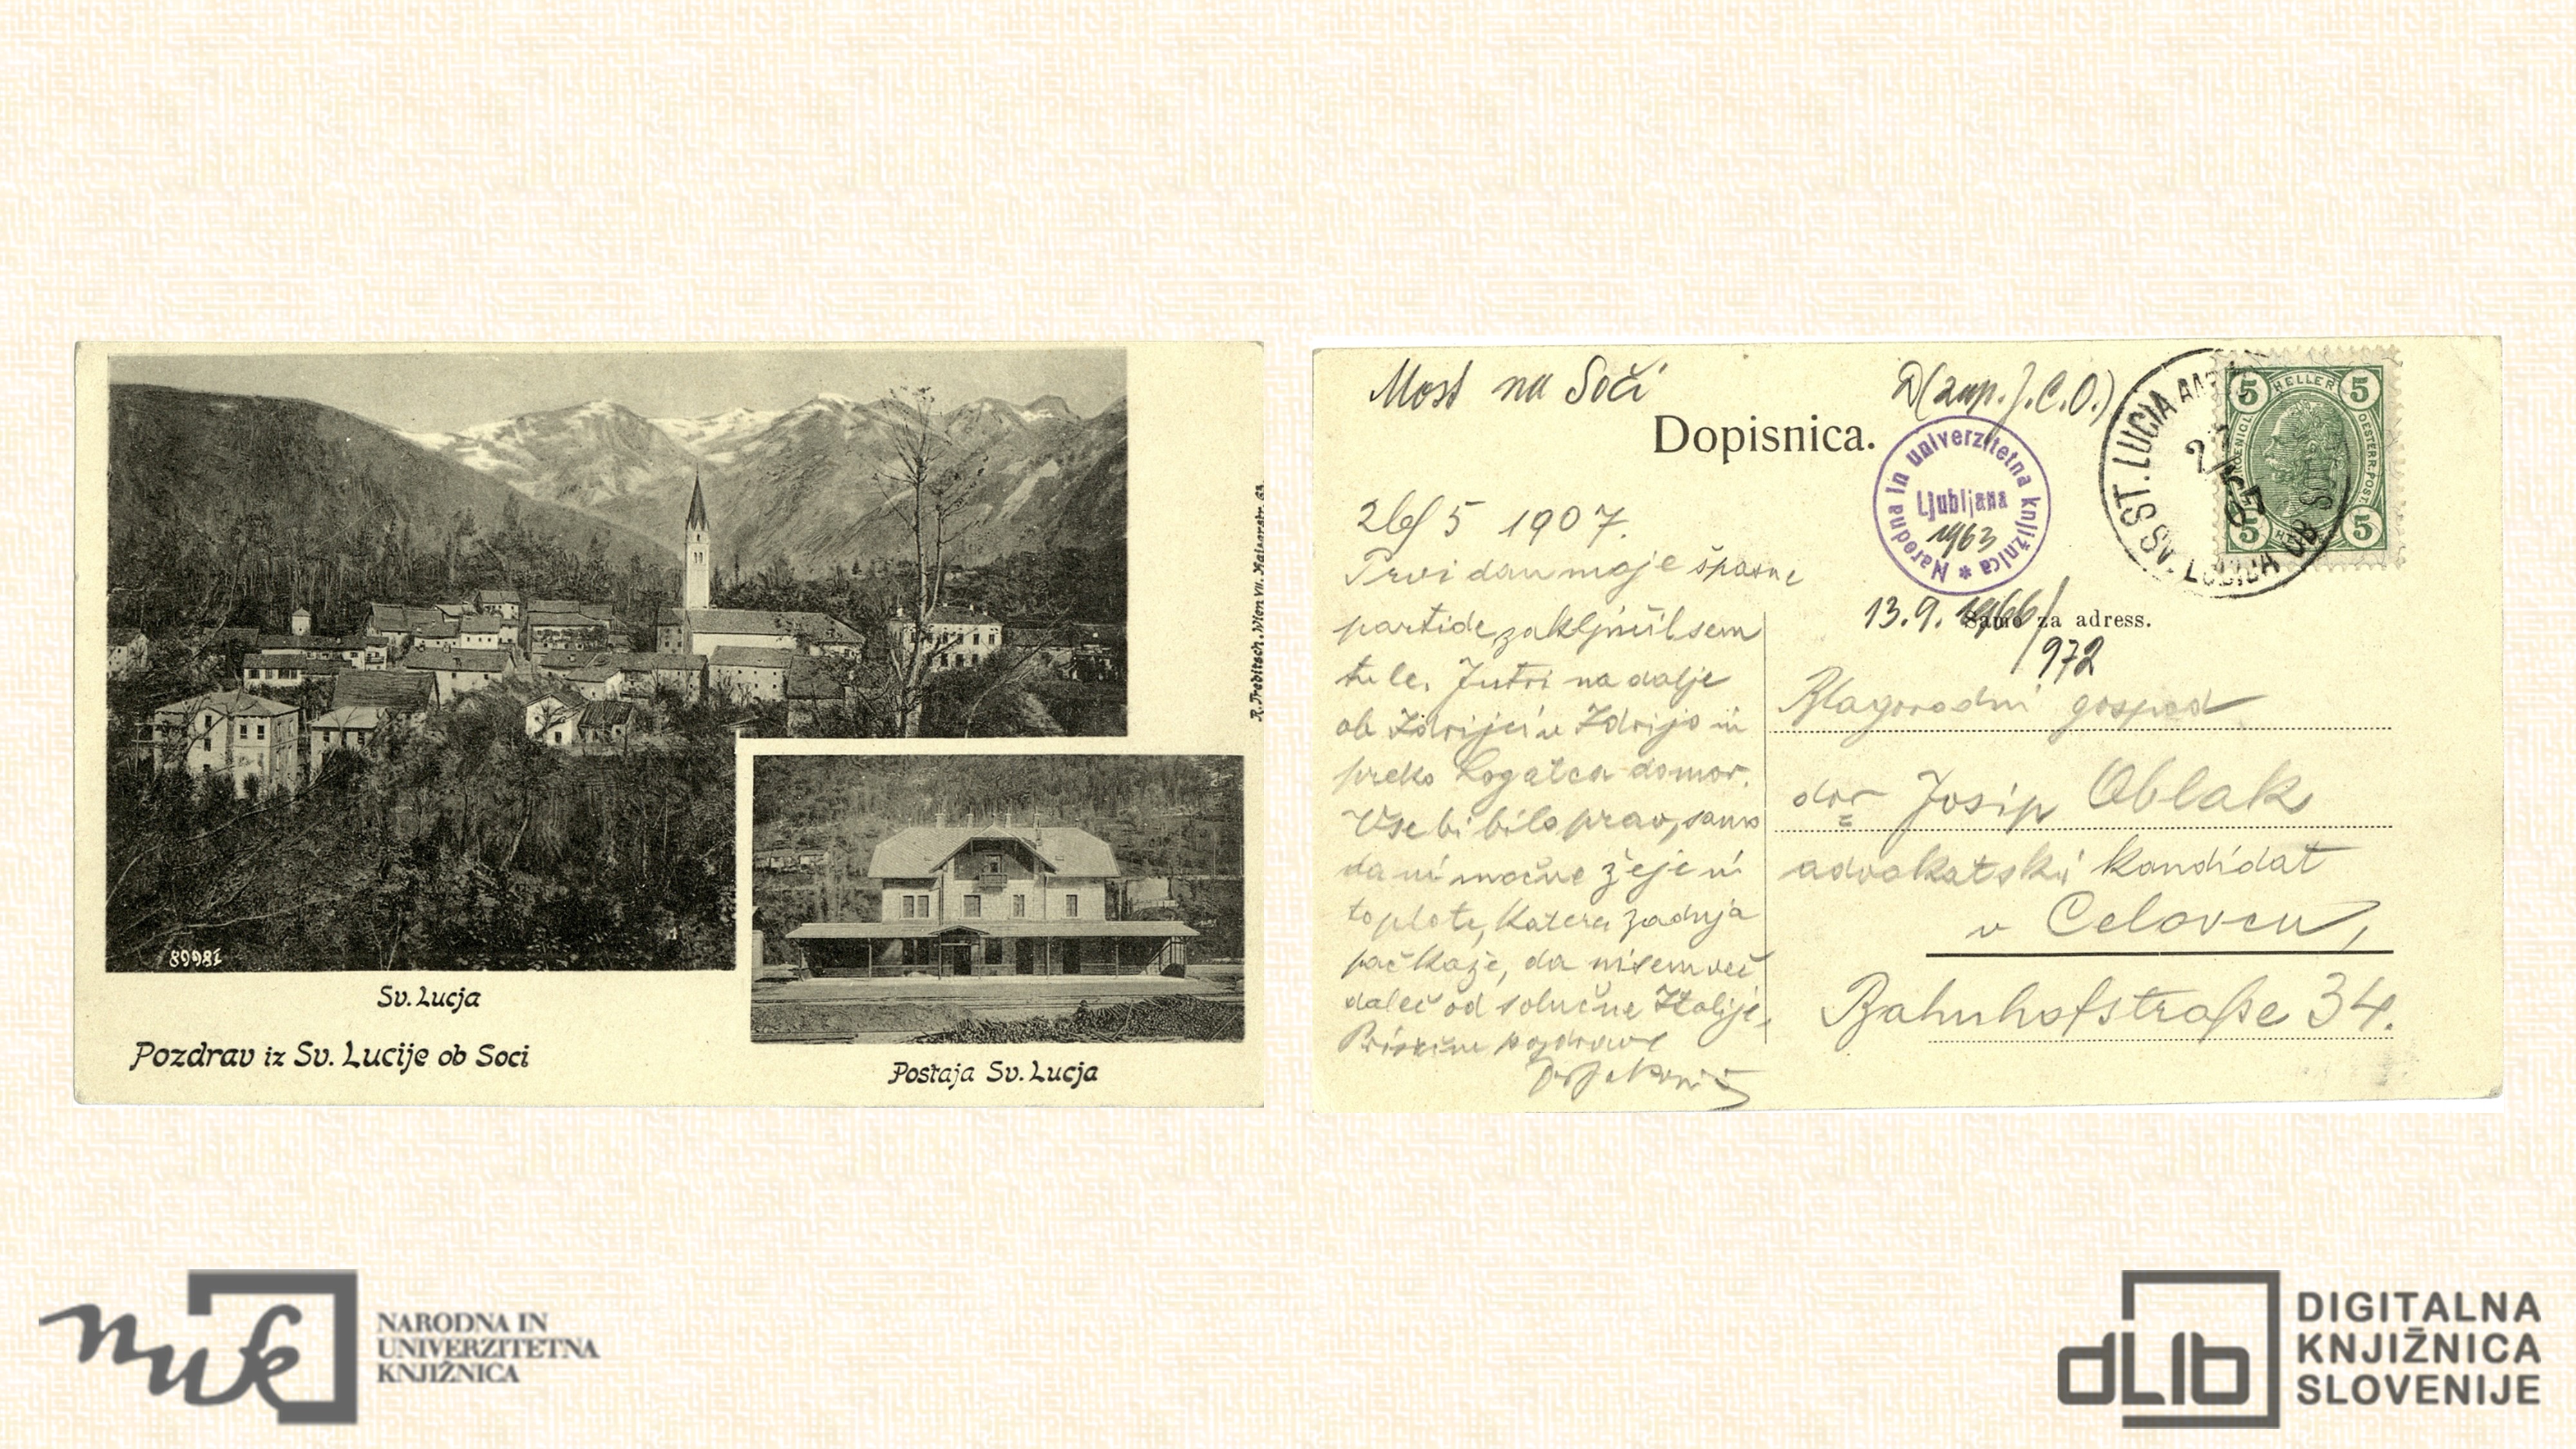 89981
Sv. Lucja
Pozdrav iz Sv. Lucije ob Soci
Postaja Sv. Lucja
R. Trebitsch, Wien VIII. Kaiserstr. 63
Most na Soči
D(zap. J.C.O.)
Dopisnica.
Narodna in univerzitetna knjižnica *
Ljubljana
1963
ST. LUCIA AM
SV. LUCIJA OB SOČI
5 HELLER 5
5 5
13.9.1966/
972
Samo za adress.
26/5 1907.
Prvi dan moje špasne
partide zaključil sem
tu le. Jutri na dalje
ob Idrijci v Idrijo in
preko Logatca domov.
Vse bi bilo prav, samo
da ni močne žeje ni
toplote, katera zadnja
pač kaže, da nisem več
daleč od solnčne Italije.
Prisrčne pozdrave
Blagorodni gospod
dor Josip Oblak
advokatski kandidat
v Celovcu,
Bahnhofstraße 34.
nuk
NARODNA IN
UNIVERZITETNA
KNJIŽNICA
dLib
DIGITALNA
KNJIŽNICA
SLOVENIJE